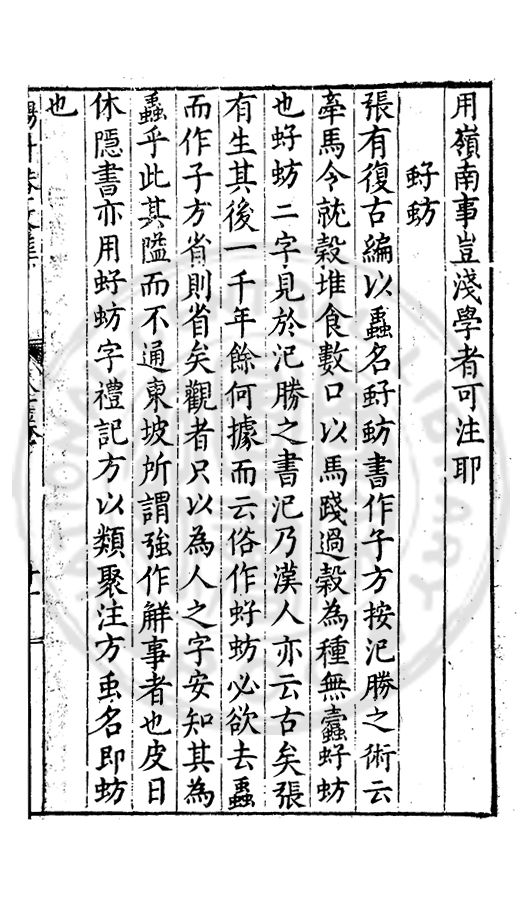 用嶺南事豈淺學者可注耶
虸蚄
張有復古編以蟲名虸蚄書作子方按汜勝之術云
牽馬令就穀堆食數口以馬踐過穀為種無蠹虸蚄
也虸蚄二字見於汜勝之書汜乃漢人亦云古矣張
有生其後一千年餘何據而云俗作虸蚄必欲去蟲
而作子方省則省矣觀者只以為人之字安知其為
蟲乎此其隘而不通東坡所謂強作解事者也皮日
休隱書亦用虸蚄字禮記方以類聚注方虫名即蚄
也